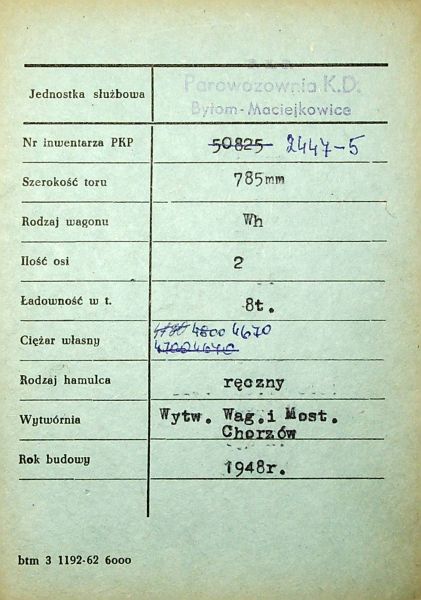 Parowozownia K.D.
Jednostka służbowa
Bytom-Maciejkowice
Nr inwentarza PKP 50825 2447-5
Szerokość toru 785mm
Rodzaj wagonu Wh
Ilość osi 2
Ładowność w t. 8t.
4800 4670
Ciężar własny
4700 4640
Rodzaj hamulca ręczny
Wytwórnia Wytw. Wag. i Most.
Chorzów
Rok budowy 1948r.
btm 3 1192-62 6000